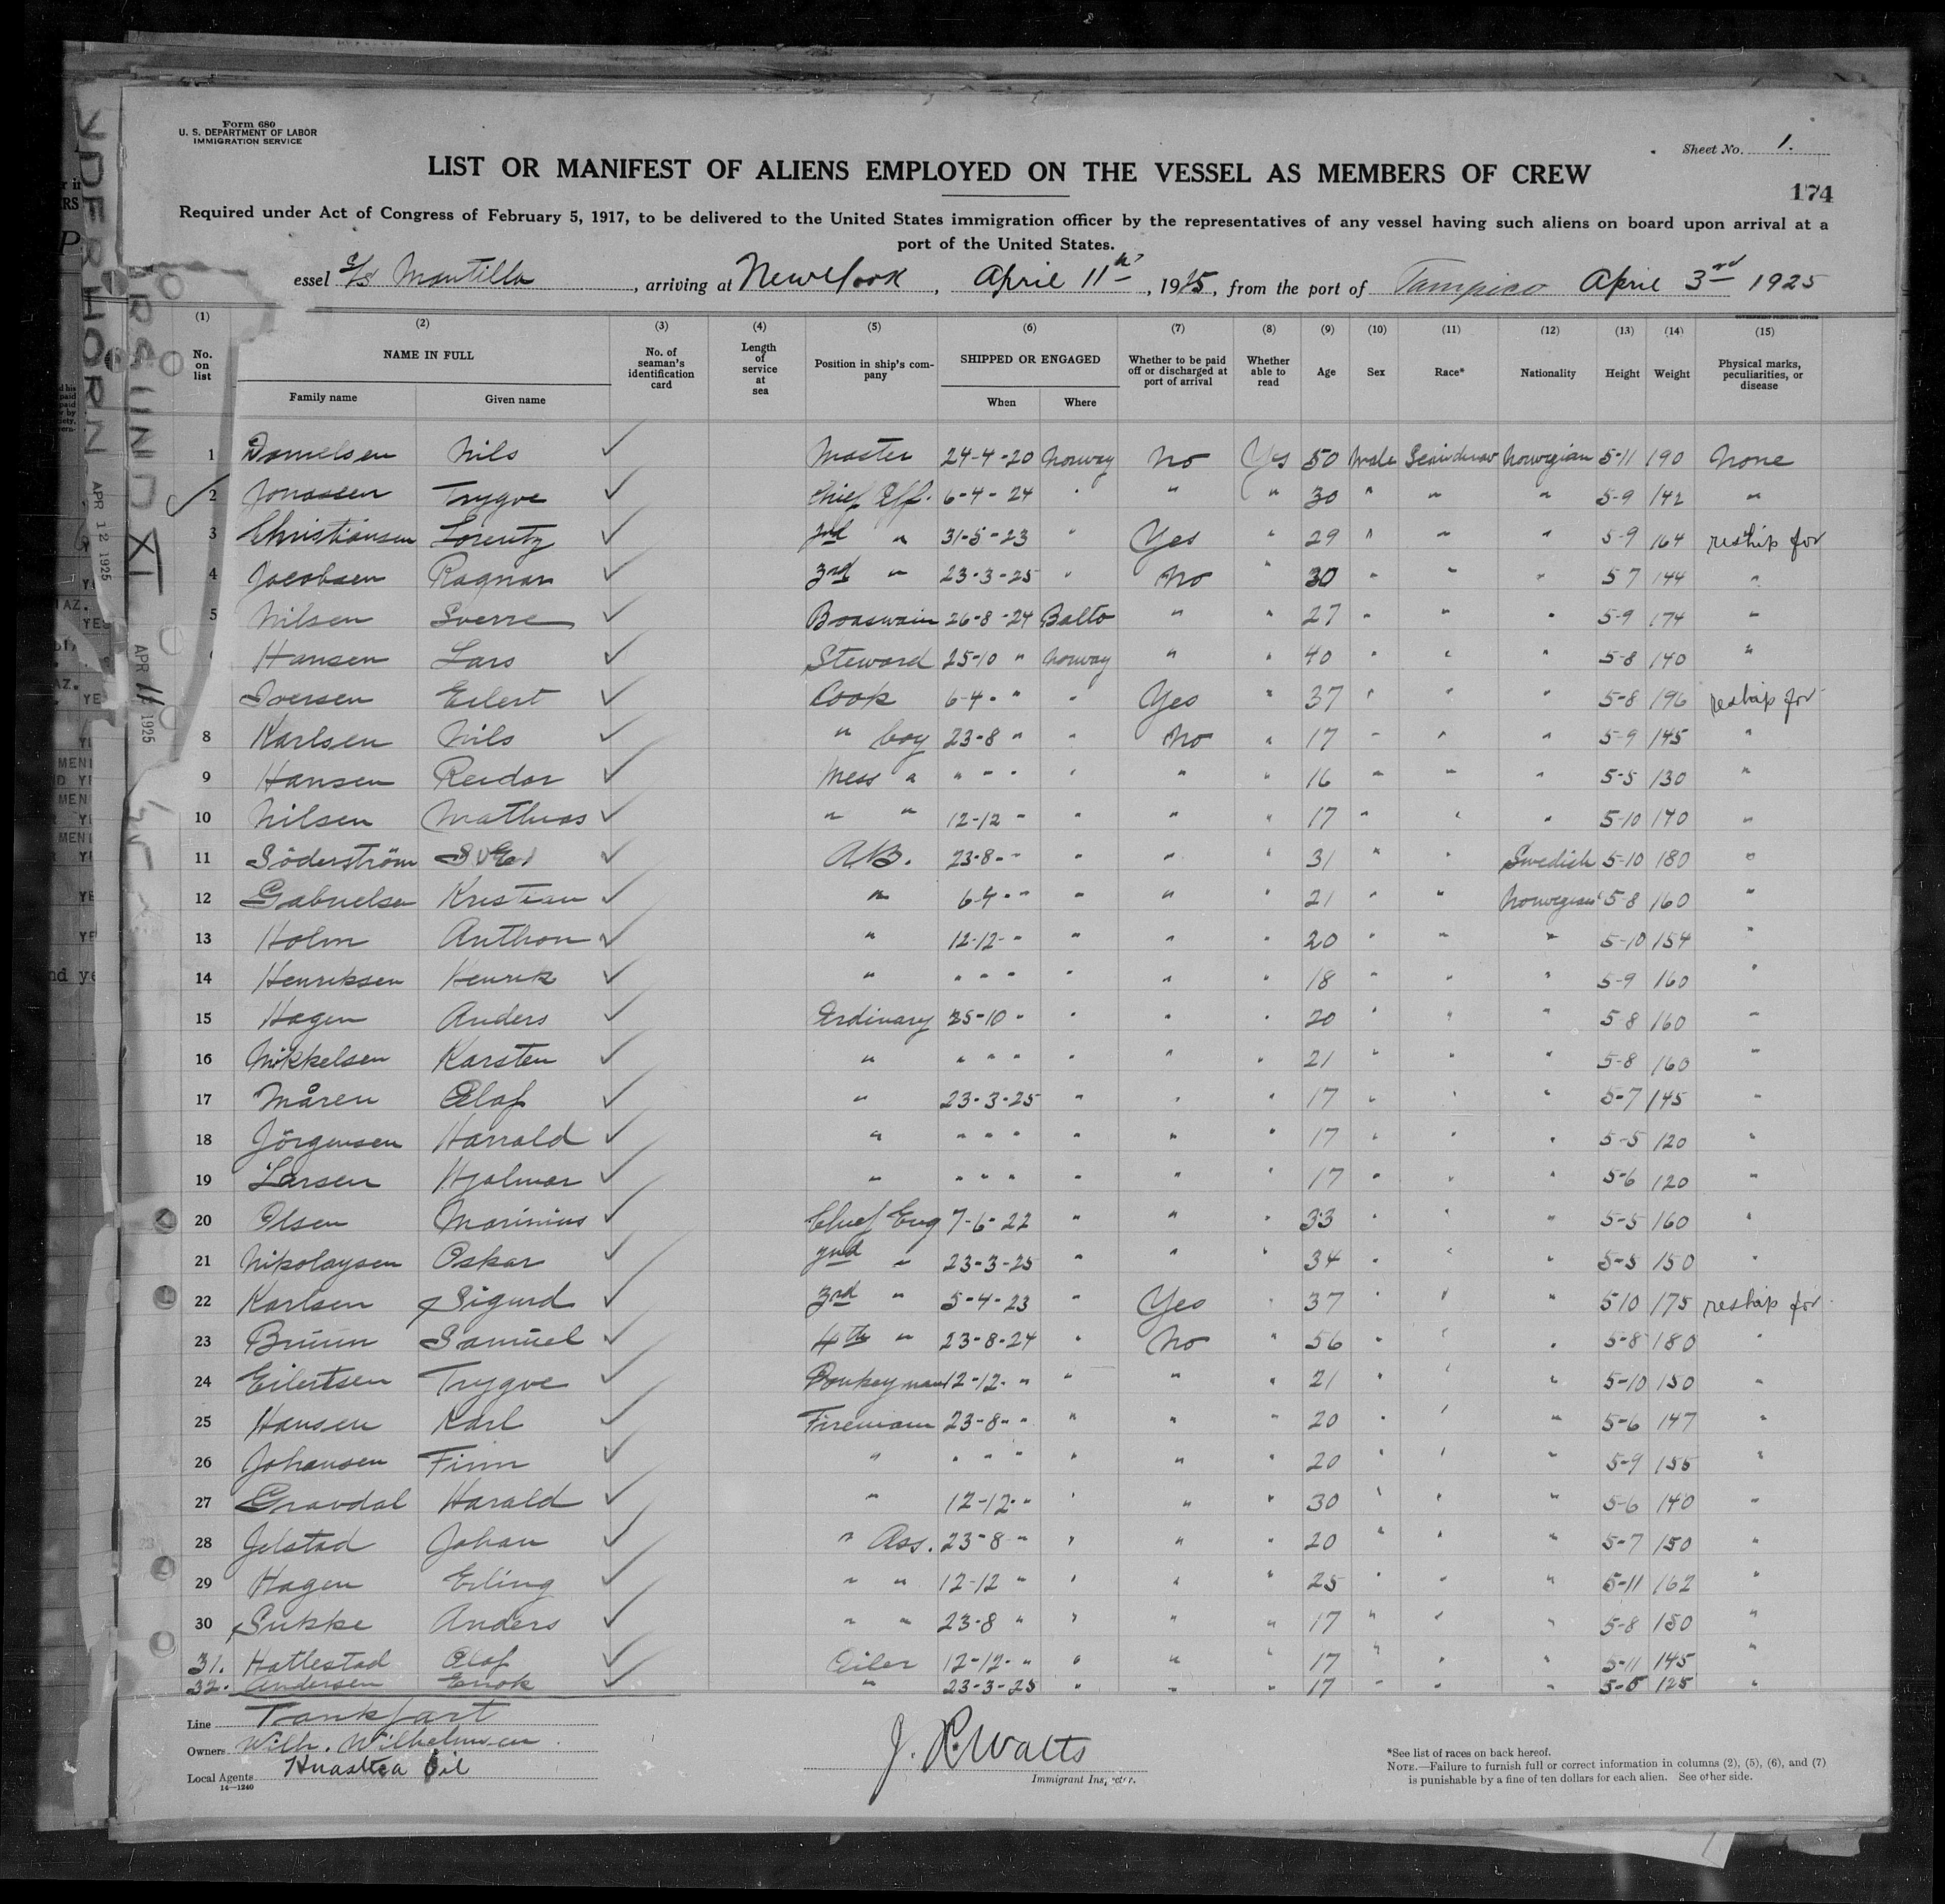 Form 680
U. S. DEPARTMENT OF LABOR
IMMIGRATION SERVICE
Sheet No. 1.
LIST OR MANIFEST OF ALIENS EMPLOYED ON THE VESSEL AS MEMBERS OF CREW
174
Required under Act of Congress of February 5, 1917, to be delivered to the United States immigration officer by the representatives of any vessel having such aliens on board upon arrival at a
port of the United States.
essel S/S Mantilla, arriving at New York, April 11th, 1925, from the port of Tampico April 3rd 1925
(1) (2) (3) (4) (5) (6) (7) (8) (9) (10) (11) (12) (13) (14) (15)
No. on list NAME IN FULL No. of seaman's identification card Length of service at sea Position in ship's company SHIPPED OR ENGAGED Whether to be paid off or discharged at port of arrival Whether able to read Age Sex Race* Nationality Height Weight Physical marks, peculiarities, or disease
Family name Given name When Where
1 Danielsen Nils Master 24-4-20 Norway No Yes 50 Male Scandinav Norwegian 5-11 190 None
2 Jonassen Trygve Chief Off. 6-4-24 " " " 30 " " " 5-9 142 "
3 Christiansen Lorentz 2nd " 31-5-23 " Yes " 29 " " " 5-9 164 reship for
4 Jacobsen Ragnar 3rd " 23-3-25 " No " 30 " " " 5 7 144 "
5 Nilsen Sverre Boaswain 26-8-24 Balto " " 27 " " " 5-9 174 "
Hansen Lars Steward 25-10 " Norway " " 40 " " " 5-8 140 "
Iversen Eilert Cook 6-4- " " Yes " 37 " " " 5-8 196 reship for
8 Karlsen Nils " boy 23-8 " " No " 17 " " " 5-9 145 "
9 Hansen Reidar Mess " " " " " " 16 " " " 5-5 130 "
10 Nilsen Mathias " " 12-12 " " " " 17 " " " 5-10 140 "
11 Söderström AB. 23-8- " " " " 31 " " Swedish 5-10 180 "
12 Gabrielsen Kristian " 6-4- " " " " 21 " " Norwegian 5-8 160 "
13 Holm Anthon " 12-12- " " " " 20 " " " 5-10 154 "
14 Henriksen Henrik " " " " " " " 18 " " " 5-9 160 "
15 Hagen Anders Ordinary 25-10 " " " " 20 " " " 5 8 160 "
16 Mikkelsen Karsten " " " " " " " 21 " " " 5-8 160 "
17 Måren Olaf " 23-3-25 " " " 17 " " " 5-7 145 "
18 Jörgensen Harrald " " " " " " " 17 " " " 5-5 120 "
19 Larsen Hjalmar " " " " " " " 17 " " " 5-6 120 "
20 Olsen Marinius Chief Eng 7-6-22 " " " 33 " " " 5-5 160 "
21 Nikolaysen Oskar 2nd " 23-3-25 " " " 34 " " " 5-5 150 "
22 Karlsen Sigurd 3rd " 5-4-23 " Yes " 37 " " " 5 10 175 reship for
23 Bruun Samuel 4th " 23-8-24 " No " 56 " " " 5-8 180 "
24 Eilertsen Trygve Donkeyman 12-12- " " " " 21 " " " 5-10 150 "
25 Hansen Karl Fireman 23-8- " " " " 20 " " " 5-6 147 "
26 Johansen Finn " " " " " " " 20 " " " 5-9 155 "
27 Gravdal Harald " 12-12- " " " " 30 " " " 5-6 140 "
28 Jelstad Johan " Ass. 23-8 " " " " 20 " " " 5-7 150 "
29 Hagen Erling " " 12-12 " " " " 25 " " " 5-11 162 "
30 Sukke Anders " " 23-8 " " " " 17 " " " 5-8 150 "
31. Hattestad Olaf Oiler 12-12- " " " " 17 " " " 5-11 145 "
32. Andersen Enok " 23-3-25 " " " 17 " " " 5-5 125 "
Line Tankfart
Owners Wilh. Wilhelmsen
Local Agents Huasteca Oil
14—1240
J. R. Watts
Immigrant Inspector.
*See list of races on back hereof.
NOTE.—Failure to furnish full or correct information in columns (2), (5), (6), and (7)
is punishable by a fine of ten dollars for each alien. See other side.
APR 12 1925
APR 11 1925